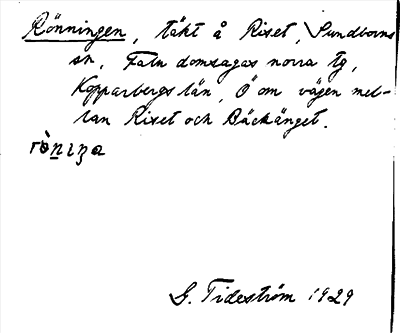 Rönningen, täkt å Riset, Sundborns
sn, Falu domsagas norra tg,
Kopparbergs län, Ö om vägen mel-
lan Riset och Bäckänget.
G. Tideström 1929